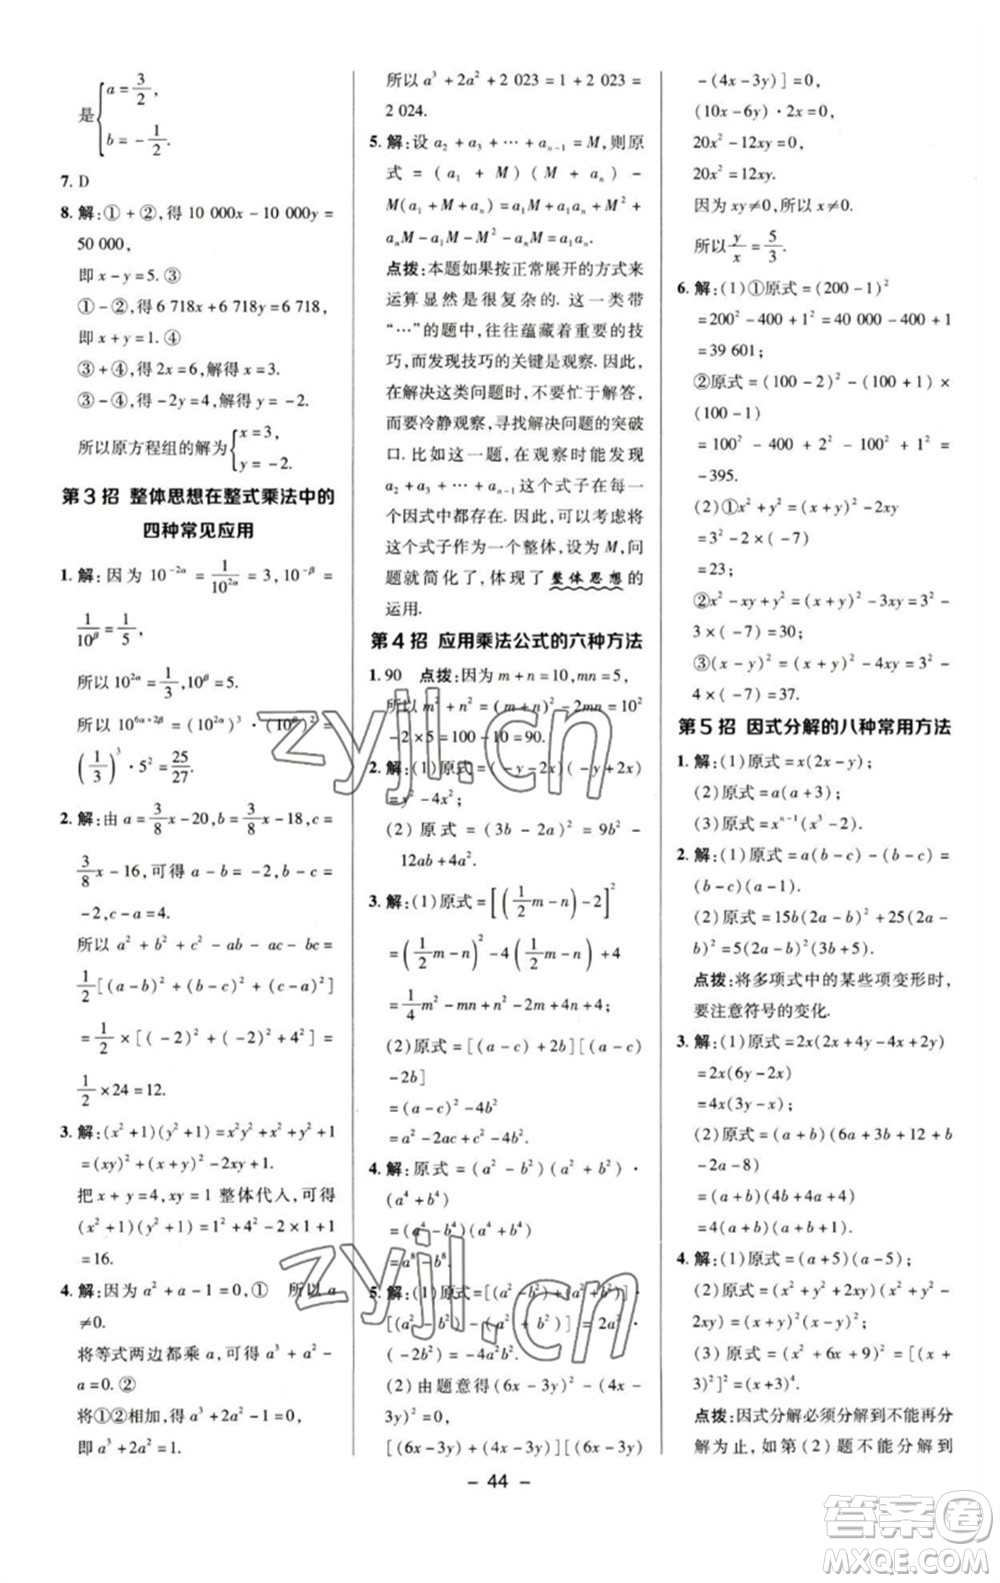 是{a=3/2,
b=-1/2.
7. D
8. 解:①+②,得 10 000x-10 000y=
50 000,
即 x-y=5. ③
①-②,得 6 718x+6 718y=6 718,
即 x+y=1. ④
③+④,得 2x=6,解得 x=3.
③-④,得-2y=4,解得 y=-2.
所以原方程组的解为{x=3,
y=-2.
第3招 整体思想在整式乘法中的
四种常见应用
1. 解:因为 10^{-2α}=1/10^{2α}=3,10^{-β}=
1/10^β=1/5,
所以 10^{2α}=1/3,10^β=5.
所以 10^{6α+2β}=(10^{2α})^3·(10^β)^2=
(1/3)^3·5^2=25/27.
2. 解:由 a=3/8x-20,b=3/8x-18,c=
3/8x-16,可得 a-b=-2,b-c=
-2,c-a=4.
所以 a²+b²+c²-ab-ac-bc=
1/2[(a-b)²+(b-c)²+(c-a)²]=
1/2×[(-2)²+(-2)²+4²]=
1/2×24=12.
3. 解:(x²+1)(y²+1)=x²y²+x²+y²+1
=(xy)²+(x+y)²-2xy+1.
把 x+y=4,xy=1 整体代入,得
(x²+1)(y²+1)=1²+4²-2×1+1
=16.
4. 解:因为 a²+a-1=0,① 所以 a
≠0.
将等式两边都乘 a,可得 a³+a²-
a=0. ②
将①②相加,得 a³+2a²-1=0,
即 a³+2a²=1.
所以 a³+2a²+2 023=1+2 023=
2 024.
5. 解:设 a₂+a₃+…+a_{n-1}=M,则原
式=(a₁+M)(M+a_n)-
M(a₁+M+a_n)=a₁M+a₁a_n+M²+
a_nM-a₁M-M²-a_nM=a₁a_n.
点拨:本题如果按正常展开的方式来
运算显然是很复杂的. 这一类带
“…”的题中,往往蕴藏着重要的技
巧,而发现技巧的关键是观察. 因此,
在解决这类问题时,不要忙于解答,
而要冷静观察,寻找解决问题的突破
口. 比如这一题,在观察时能发现
a₂+a₃+…+a_{n-1}这个式子在每一
个因式中都存在. 因此,可以考虑将
这个式子作为一个整体,设为 M,问
题就简化了,体现了整体思想的
运用.
第4招 应用乘法公式的六种方法
1. 90 点拨:因为 m+n=10,mn=5,
所以 m²+n²=(m+n)²-2mn=10²
-2×5=100-10=90.
2. 解:(1)原式=(-y-2x)(-y+2x)
=y²-4x²;
(2)原式=(3b-2a)²=9b²-
12ab+4a².
3. 解:(1)原式=[(1/2m-n)-2]²
=(1/2m-n)²-4(1/2m-n)+4
=1/4m²-mn+n²-2m+4n+4;
(2)原式=[(a-c)+2b][(a-c)
-2b]
=(a-c)²-4b²
=a²-2ac+c²-4b².
4. 解:原式=(a²-b²)(a²+b²)·
(a⁴+b⁴)
=(a⁴-b⁴)(a⁴+b⁴)
=a⁸-b⁸.
5. 解:(1)原式=[(a²-b²)+(a²+b²)]·
[(a²-b²)-(a²+b²)]=2a²·
(-2b²)=-4a²b²;
(2)由题意得(6x-3y)²-(4x-
3y)²=0,
[(6x-3y)+(4x-3y)][(6x-3y)
-(4x-3y)]=0,
(10x-6y)·2x=0,
20x²-12xy=0,
20x²=12xy,
因为 xy≠0,所以 x≠0.
所以 y/x=5/3.
6. 解:(1)①原式=(200-1)²
=200²-400+1²=40 000-400+1
=39 601;
②原式=(100-2)²-(100+1)×
(100-1)
=100²-400+2²-100²+1²=
-395.
(2)①x²+y²=(x+y)²-2xy
=3²-2×(-7)
=23;
②x²-xy+y²=(x+y)²-3xy=3²-
3×(-7)=30;
③(x-y)²=(x+y)²-4xy=3²-
4×(-7)=37.
第5招 因式分解的八种常用方法
1. 解:(1)原式=x(2x-y);
(2)原式=a(a+3);
(3)原式=x^{n-1}(x³-2).
2. 解:(1)原式=a(b-c)-(b-c)=
(b-c)(a-1).
(2)原式=15b(2a-b)²+5(2a-
b)²=5(2a-b)²(3b+5).
点拨:将多项式中的某些项变形时,
要注意符号的变化.
3. 解:(1)原式=2x(2x+4y-4x+2y)
=2x(6y-2x)
=4x(3y-x);
(2)原式=2(a+b)(6a+3b+12+b
-2a-8)
=(a+b)(4b+4a+4)
=4(a+b)(a+b+1).
4. 解:(1)原式=(a+5)(a-5);
(2)原式=(x²+y²+2xy)(x²+y²-
2xy)=(x+y)²(x-y)²;
(3)原式=(x²+6x+9)²=[(x+
3)²]²=(x+3)⁴.
点拨:因式分解必须分解到不能再分
解为止,如第(2)题不能分解到
- 44 -
zyjl.cn
zyjl.cn
答案圈
MXQE.COM